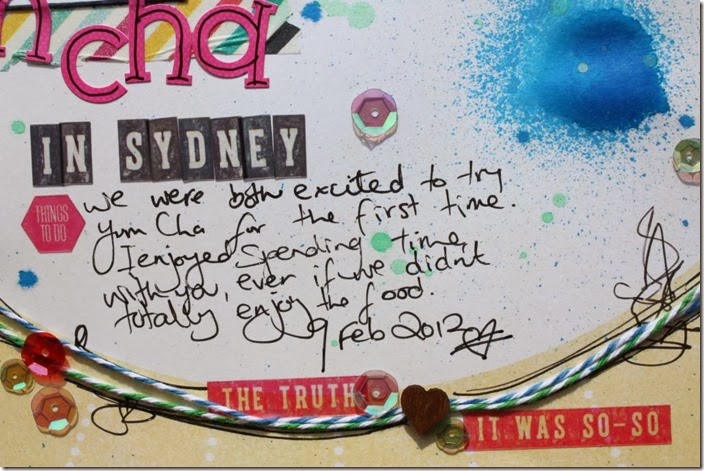 n cha
IN SYDNEY
THINGS
TO DO
We were both excited to try
Yum Cha for the first time.
I enjoyed spending time
with you, even if we didn't
totally enjoy the food.
9 Feb 2013
THE TRUTH
IT WAS SO-SO